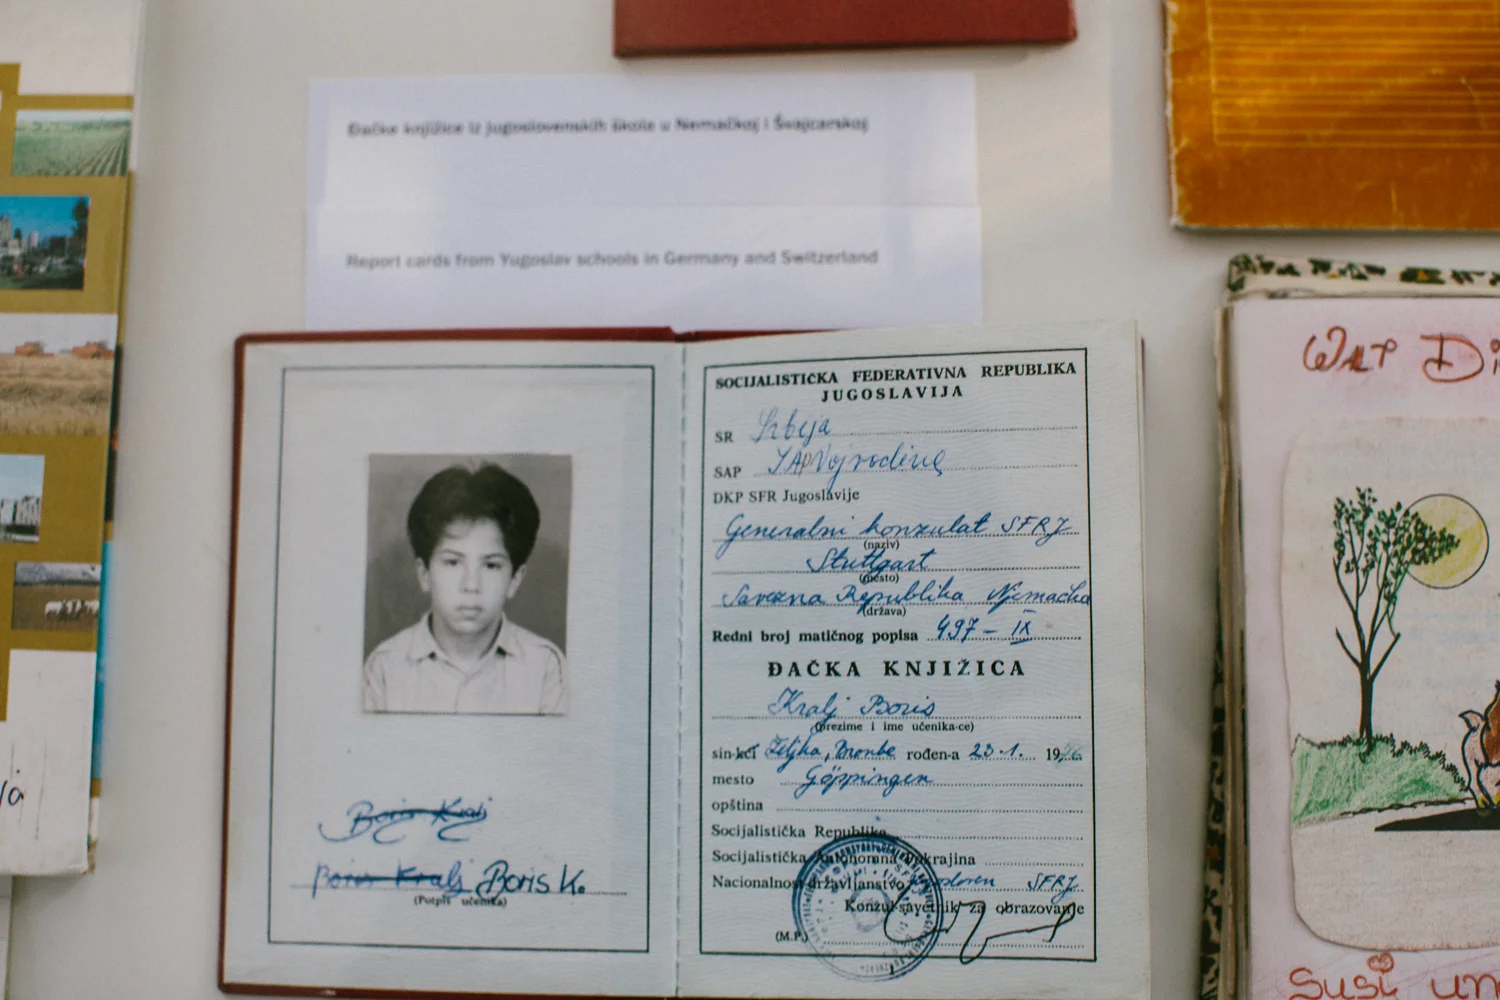 Đačke knjižice iz jugoslovenskih škola u Nemačkoj i Švajcarskoj
Report cards from Yugoslav schools in Germany and Switzerland
SOCIJALISTIČKA FEDERATIVNA REPUBLIKA
JUGOSLAVIJA
SR Srbija
SAP SAP Vojvodina
DKP SFR Jugoslavije
Generalni konzulat SFRJ
(naziv)
Stuttgart
(mesto)
Savezna Republika Njemačka
(država)
Redni broj matičnog popisa 497 – IX
ĐAČKA KNJIŽICA
Kralj Boris
(prezime i ime učenika-ce)
sin-kći Željka, Bronke rođen-a 23.1. 19
mesto Göppingen
opština
Socijalistička Republika
Socijalistička Autonomna Pokrajina
Nacionalnost državljanstvo SFRJ
Konzul-savetnik za obrazovanje
(M.P.)
Boris Kralj
Boris Kralj Boris K.
(Potpis učenika)
WALT Di
Susi un